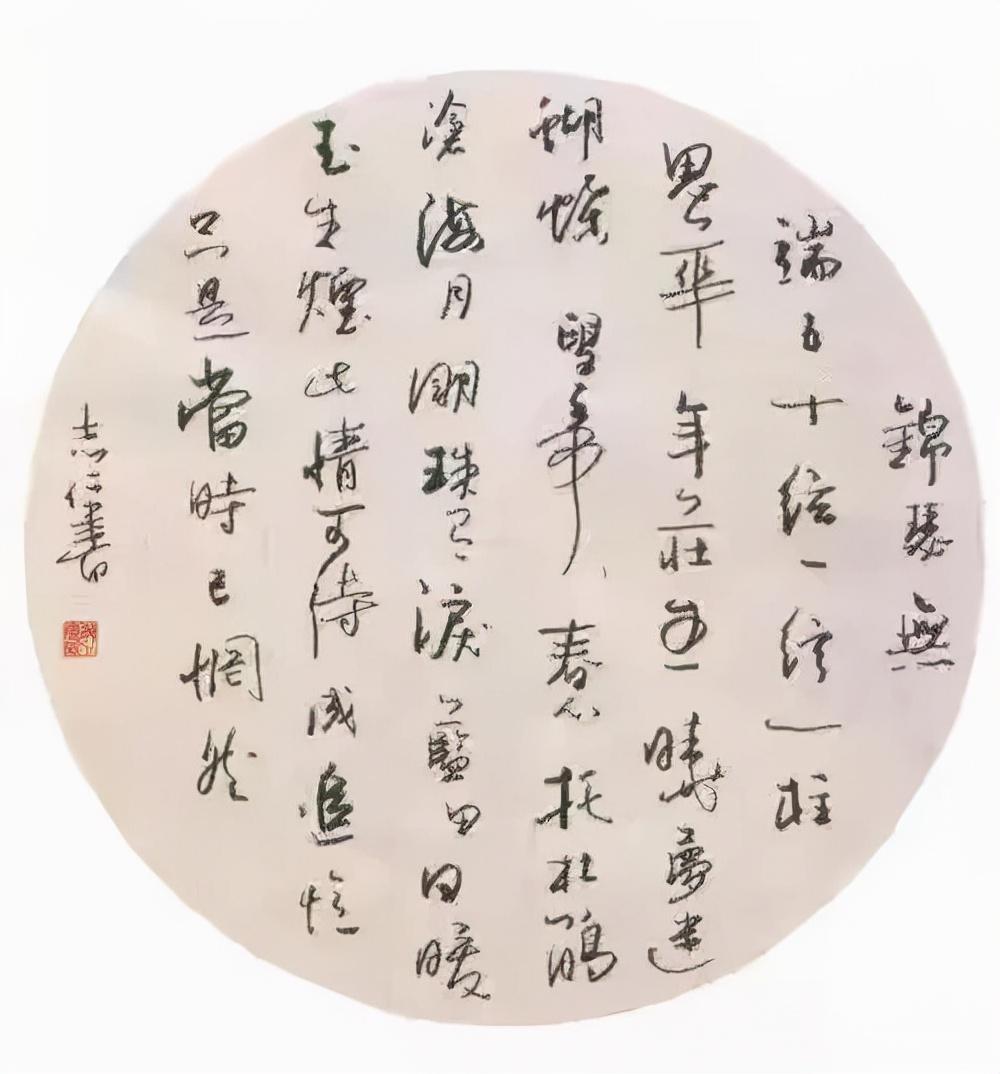 錦瑟無
端五十絃一絃一柱
思華年莊生曉夢迷
蝴蝶望帝春心托杜鵑
滄海月明珠有淚藍田日暖
玉生煙此情可待成追憶
只是當時已惘然
志書